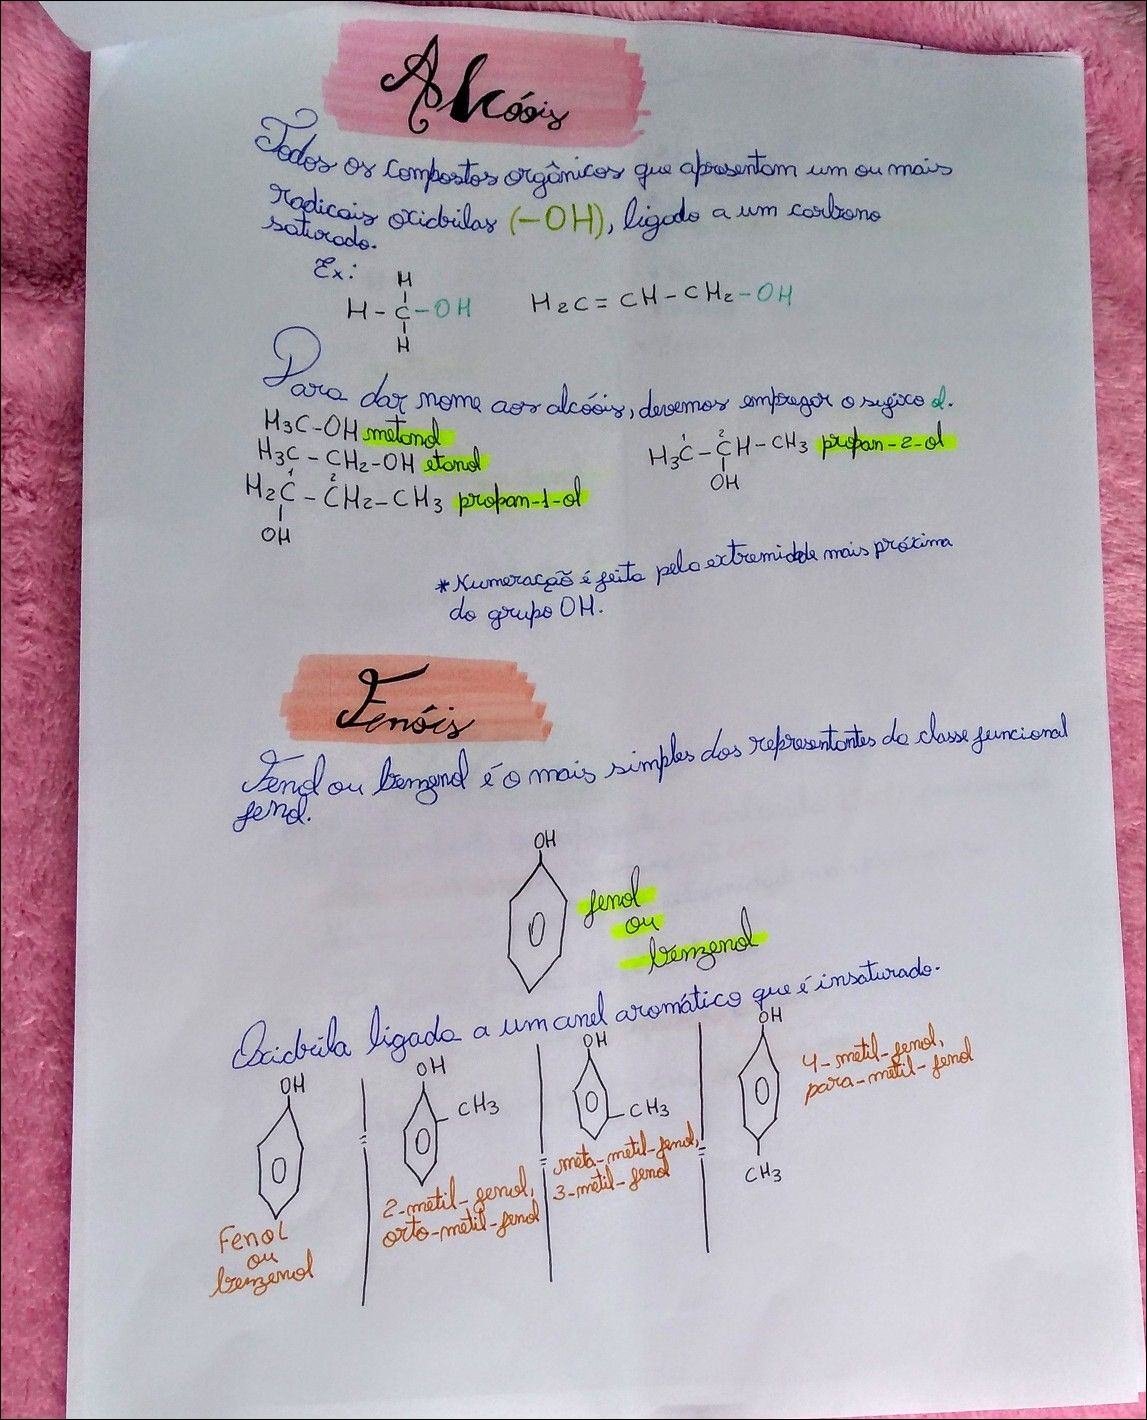 Alcóois
Todos os compostos orgânicos que apresentam um ou mais
radicais oxidrilas (-OH), ligado a um carbono
saturado.
Ex:
H
H - C - OH
H
H2C = CH - CH2 - OH
Para dar nome aos alcóois, devemos empregar o sufixo ol.
H3C-OH metanol
H3C - CH2-OH etanol
1 2
H2C - CH2-CH3 propan-1-ol
OH
1 2
H3C - CH-CH3 propan-2-ol
OH
*Numeração é feita pela extremidade mais próxima
do grupo OH.
Fenóis
Fenol ou benzenol é o mais simples dos representantes da classe funcional
fenol.
OH
fenol
ou
benzenol
Oxidrila ligada a um anel aromático que é insaturado.
OH
Fenol
ou
benzenol
OH
CH3
2-metil-fenol,
orto-metil-fenol
OH
CH3
meta-metil-fenol,
3-metil-fenol
OH
CH3
4-metil-fenol,
para-metil-fenol